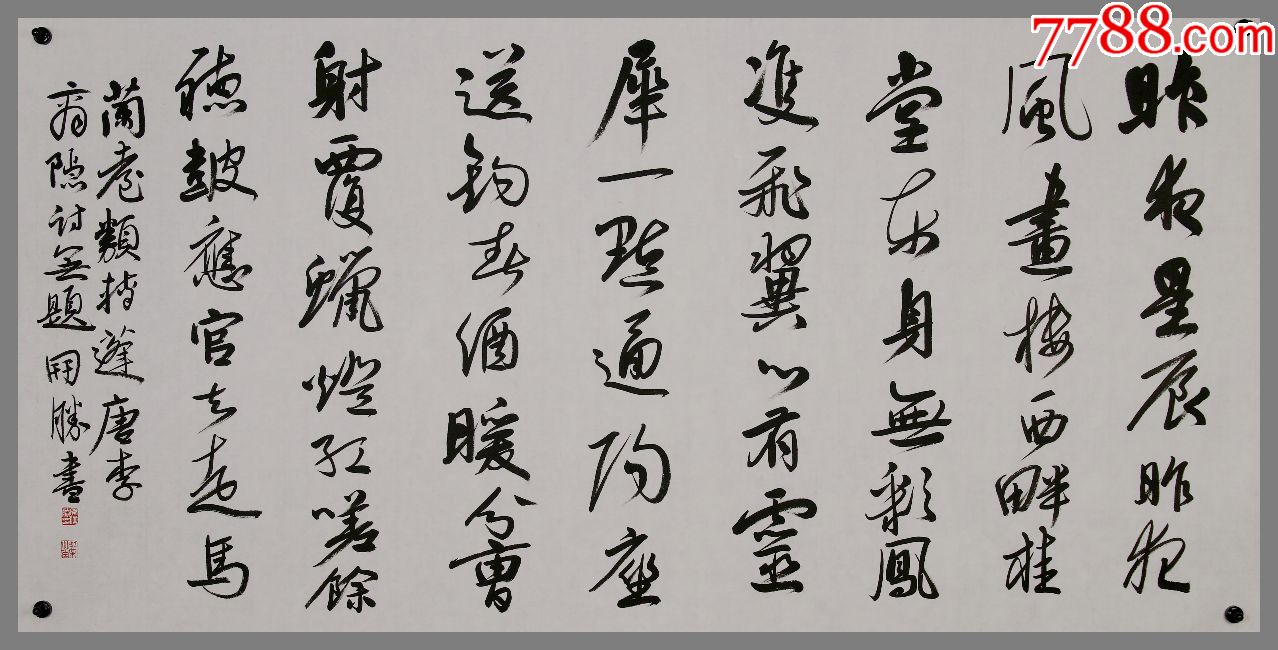 7788.com
昨夜星辰昨夜
風畫樓西畔桂
堂東身無彩鳳
雙飛翼心有靈
犀一點通隔座
送鈎春酒暖分曹
射覆蠟燈紅嗟餘
聽鼓應官去走馬
蘭臺類轉蓬唐李
商隱詩無題 開勝書